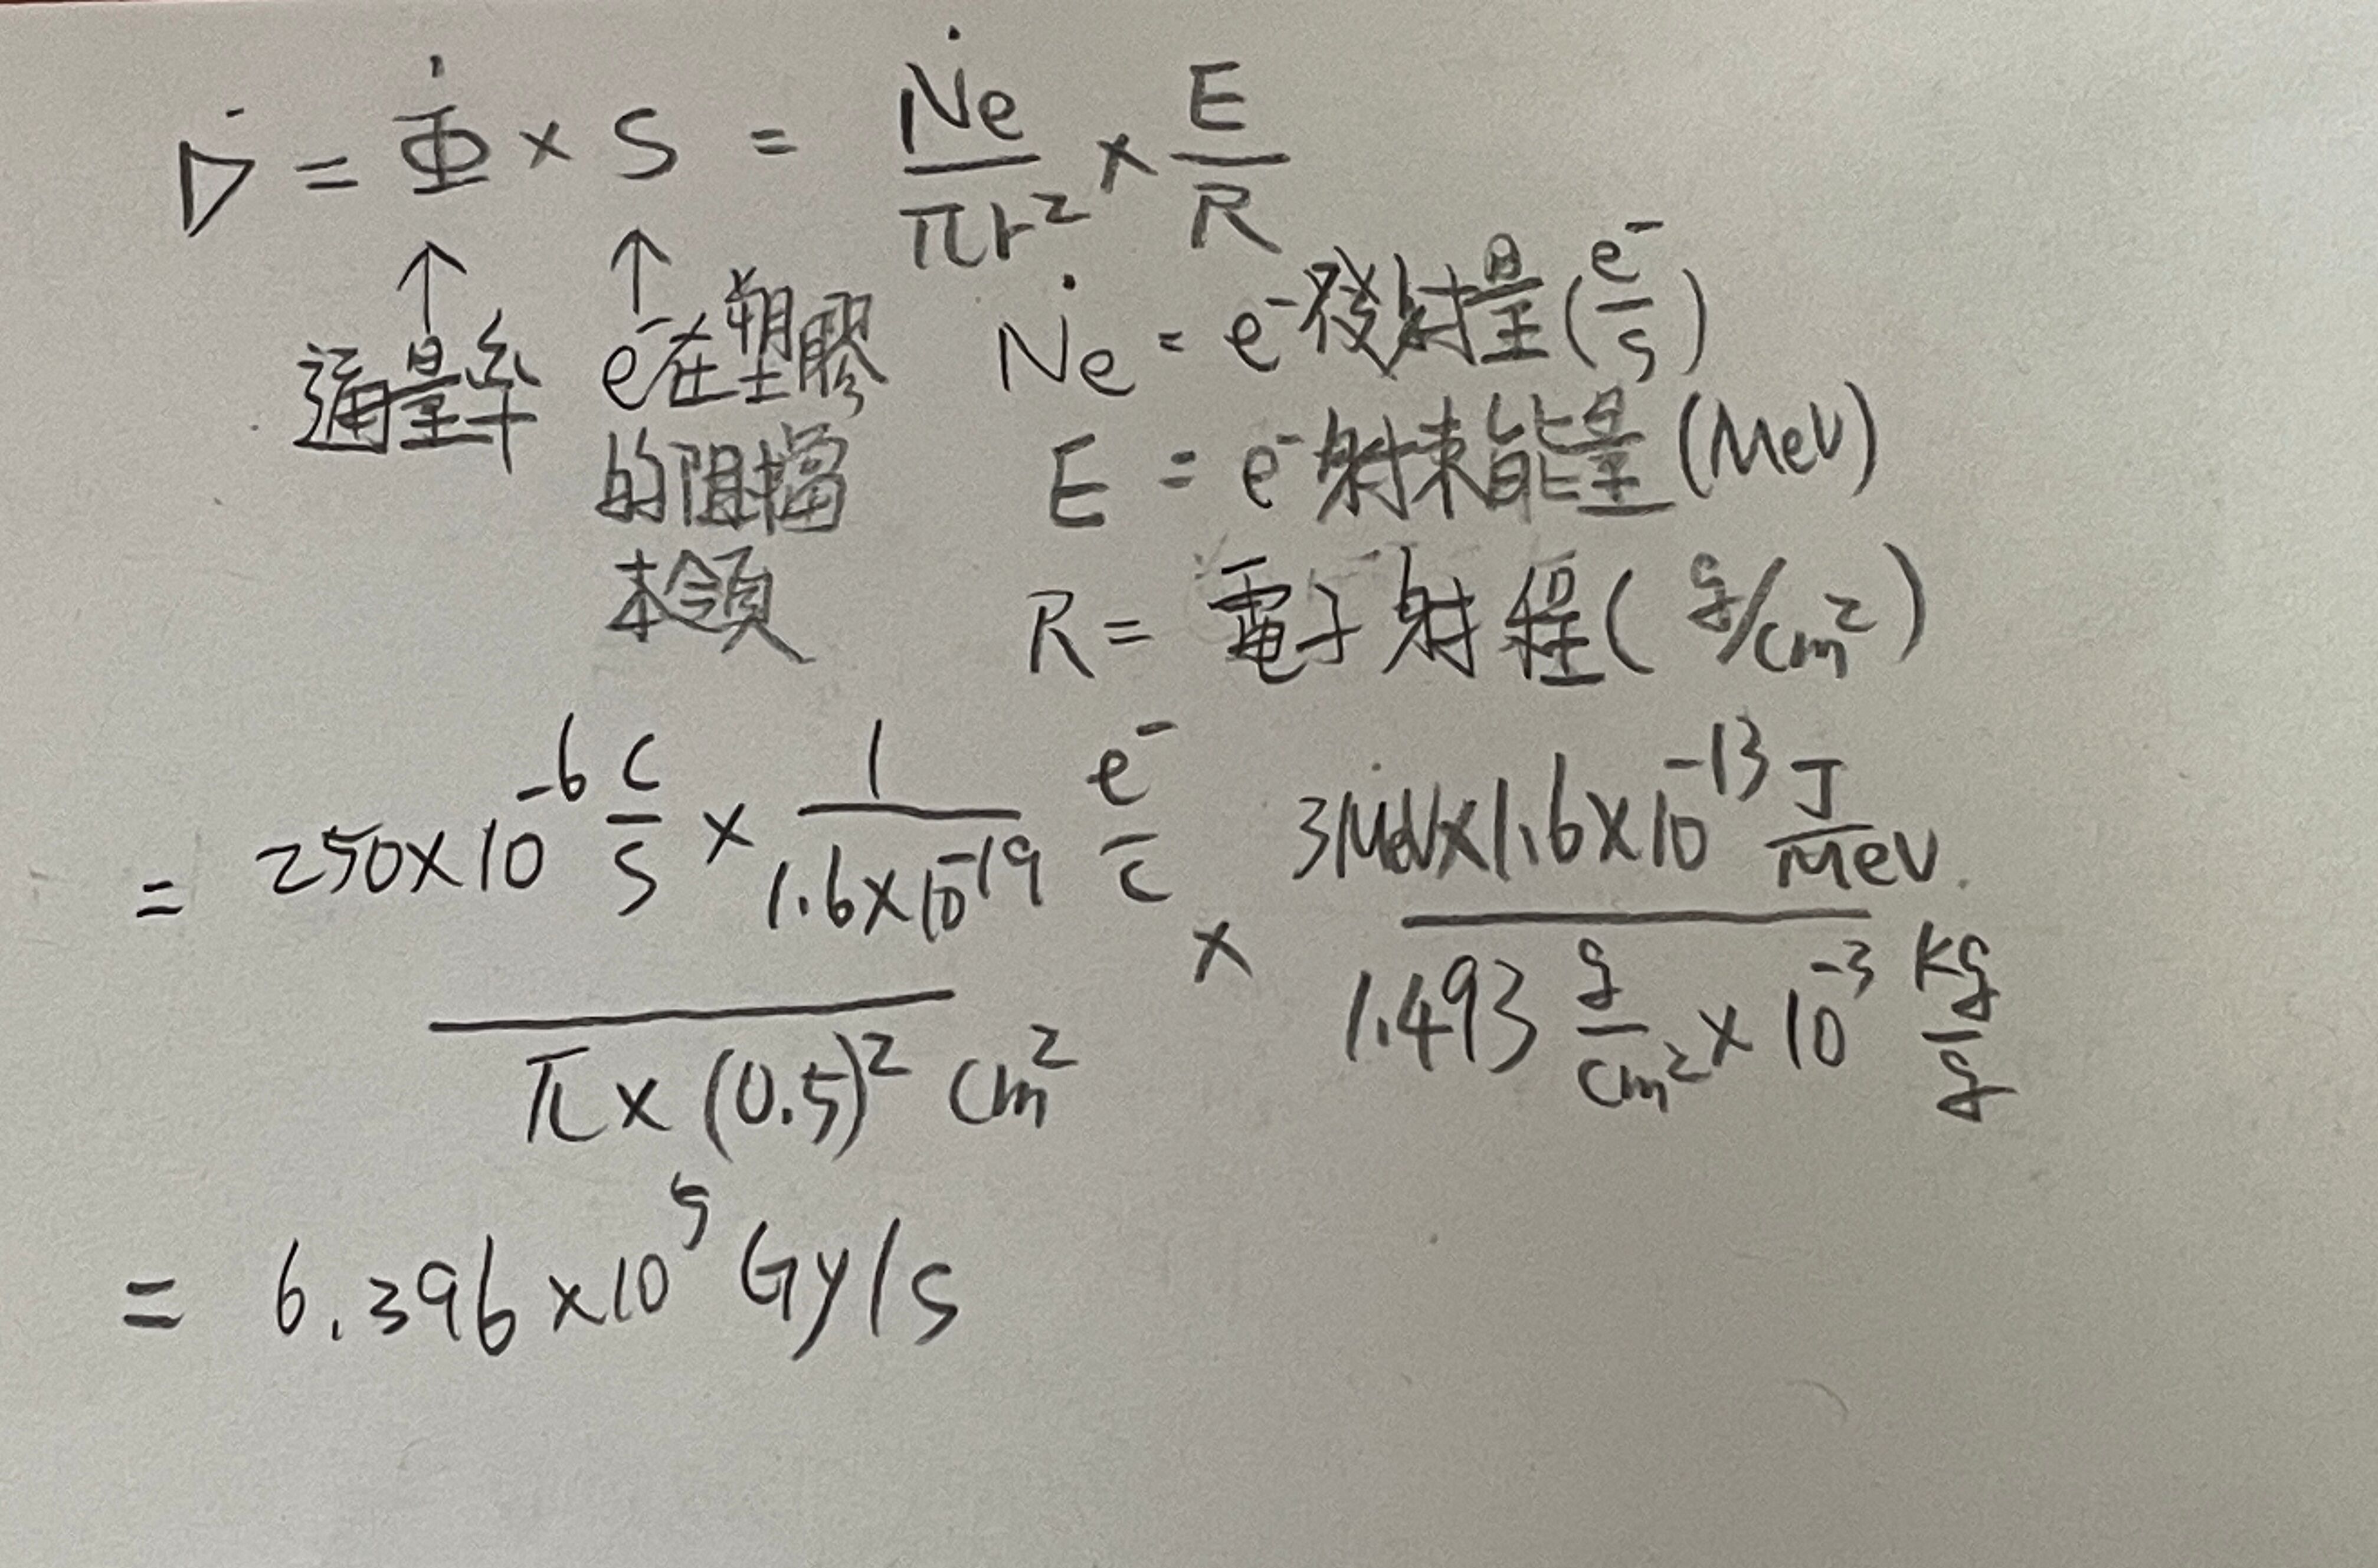 Ḋ = Φ̇ × S = Ṅe/πr² × E/R
↑ 通量率
↑ e⁻在塑膠的阻擋本領
Ṅe = e⁻發射量 (e⁻/s)
E = e⁻射束能量 (MeV)
R = 電子射程 ( g/cm² )
= (250×10⁻⁶ C/s × 1/1.6×10⁻¹⁹ e⁻/C) / (π × (0.5)² cm²) × (3MeV×1.6×10⁻¹³ J/MeV) / (1.493 g/cm² × 10⁻³ kg/g)
= 6.396×10⁵ Gy/s